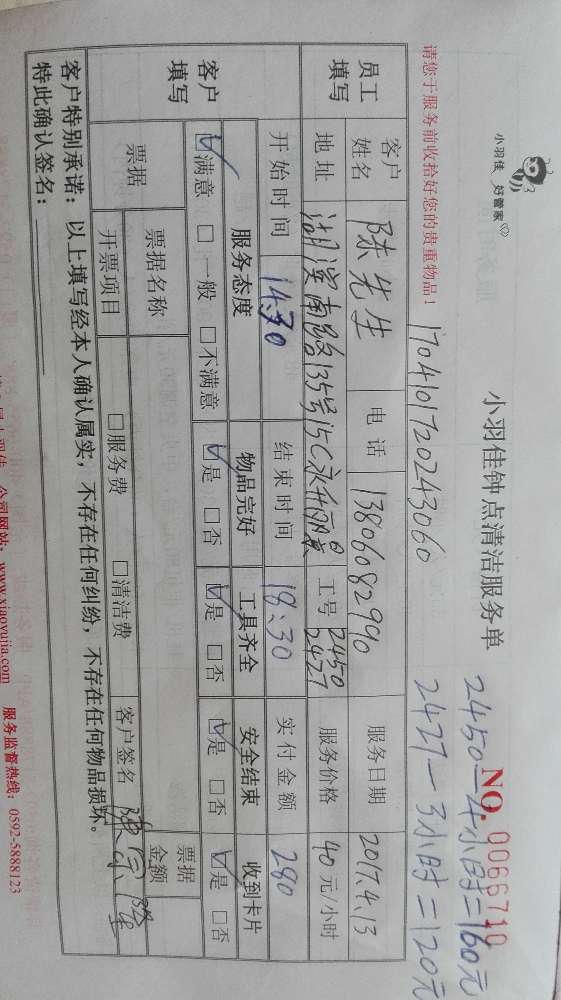 小羽佳 好管家
小羽佳钟点清洁服务单
NO. 0066710
2450—4小时=160元
2427—3小时=120元
请您于服务前收拾好您的贵重物品!
1704101720243060
员工填写
客户姓名 陈先生 电话 13806082990 服务日期 2017.4.13
地址 湖滨南路135号15C永升丽景 工号 2450 2427 服务价格 40元/小时
开始时间 14:30 结束时间 18:30 实付金额 280
客户填写
服务态度 物品完好 工具齐全 安全结束 收到卡片
☑满意 □一般 □不满意 ☑是 □否 ☑是 □否 ☑是 □否 ☑是 □否
票据 票据名称 票据金额
开票项目 □服务费 □清洁费 客户签名
客户特别承诺:以上填写经本人确认属实,不存在任何纠纷,不存在任何物品损坏。
特此确认签名:
公司网站:www.xiaoyujia.com 服务监督热线:0592-5888123